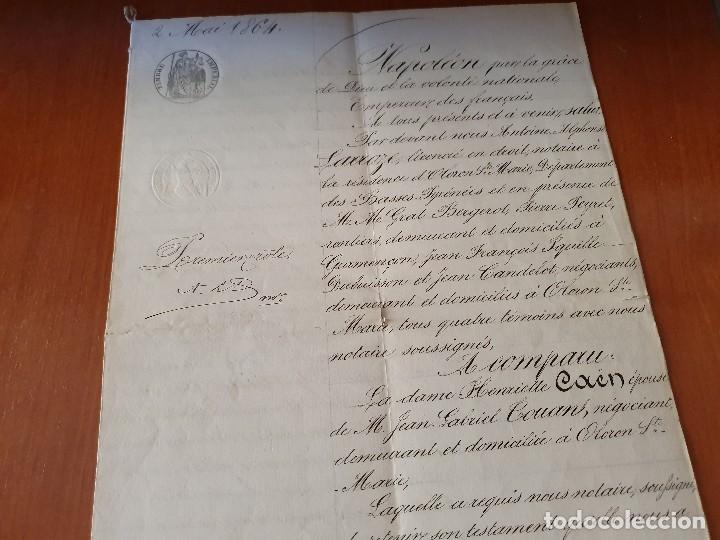 2 Mai 1864.
TIMBRE IMPÉRIAL
Napoléon par la grâce
de Dieu et la volonté nationale,
Empereur des français.
A tous présents et à venir, salut.
Par devant nous Antoine Alphonse
Larroze, licencié en droit, notaire à
la résidence d'Oloron Ste Marie, Département
des Basses-Pyrénées et en présence de
M. M. Grat Bergerot, Pierre Peyret,
rentiers, demeurant et domiciliés à
Gurmençon, Jean François
et Jean Candelot, négociants,
demeurant et domiciliés à Oloron Ste
Marie, tous quatre témoins avec nous
notaire soussignés,
A comparu:
La dame Henriette Caën épouse
de M. Jean Gabriel Couant, négociant,
demeurant et domiciliée à Oloron Ste
-Marie,
Laquelle a requis nous notaire, soussigné,
son testament qu'elle nous a
Premier rôle.
todocoleccion.net